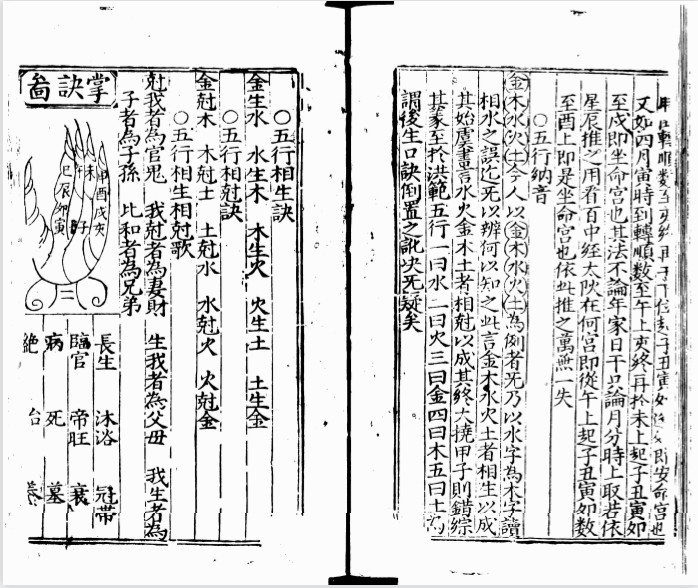 轉順數至亥終再子丑寅如即安命宮也
又如四月寅時到轉順數至午上亥終再於未上起子丑寅如
至戌即坐命宮也其法不論年家日干只論月分時上取若依
星辰推之用看百中經太陽在何宮即從午上起子丑寅如數
至酉上即是坐命宮也依此推之萬無一失
○五行納音
金木水火土今人以金木水火土為例者非乃以水字為木字讀
相水之誤迄死以辨何以知之此言金木水火土者相生以成
其始虞書言水火金木土者相尅以成其終大撓甲子則錯綜
其象至於洪範五行一曰水二曰火三曰金四曰木五曰土為
謂後生口訣倒置之訛決死疑矣
○五行相生訣
金生水 水生木 木生火 火生土 土生金
○五行相尅訣
金尅木 木尅土 土尅水 水尅火 火尅金
○五行相生相尅歌
尅我者為官鬼 我尅者為妻財 生我者為父母 我生者為
子者為子孫 比和者為兄弟
掌訣啚
午未申酉戌亥
巳辰卯寅
丑子
長生 沐浴 冠帶
臨官 帝旺 衰
病 死 墓
絕 台 養